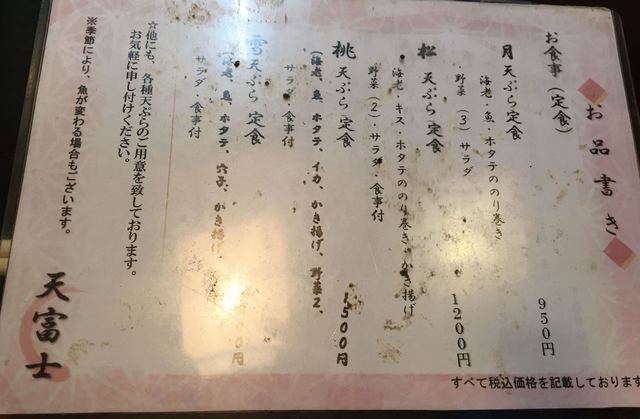 お品書き
お食事（定食）
月 天ぷら定食 950円
海老・魚・ホタテののり巻き
・野菜（3）・サラダ
松 天ぷら定食 1200円
海老・キス・ホタテののり巻き・かき揚げ
野菜（2）・サラダ・食事付
桃 天ぷら定食 1500円
（海老、魚、ホタテ、イカ、かき揚げ、野菜2、
サラダ 食事付
雪 天ぷら定食 00円
（海老、魚、ホタテ、穴子、かき揚げ、
サラダ 食事付
☆他にも、各種天ぷらのご用意を致しております。
お気軽に申し付けください。
※季節により、魚が変わる場合もございます。
天富士
すべて税込価格を記載しております